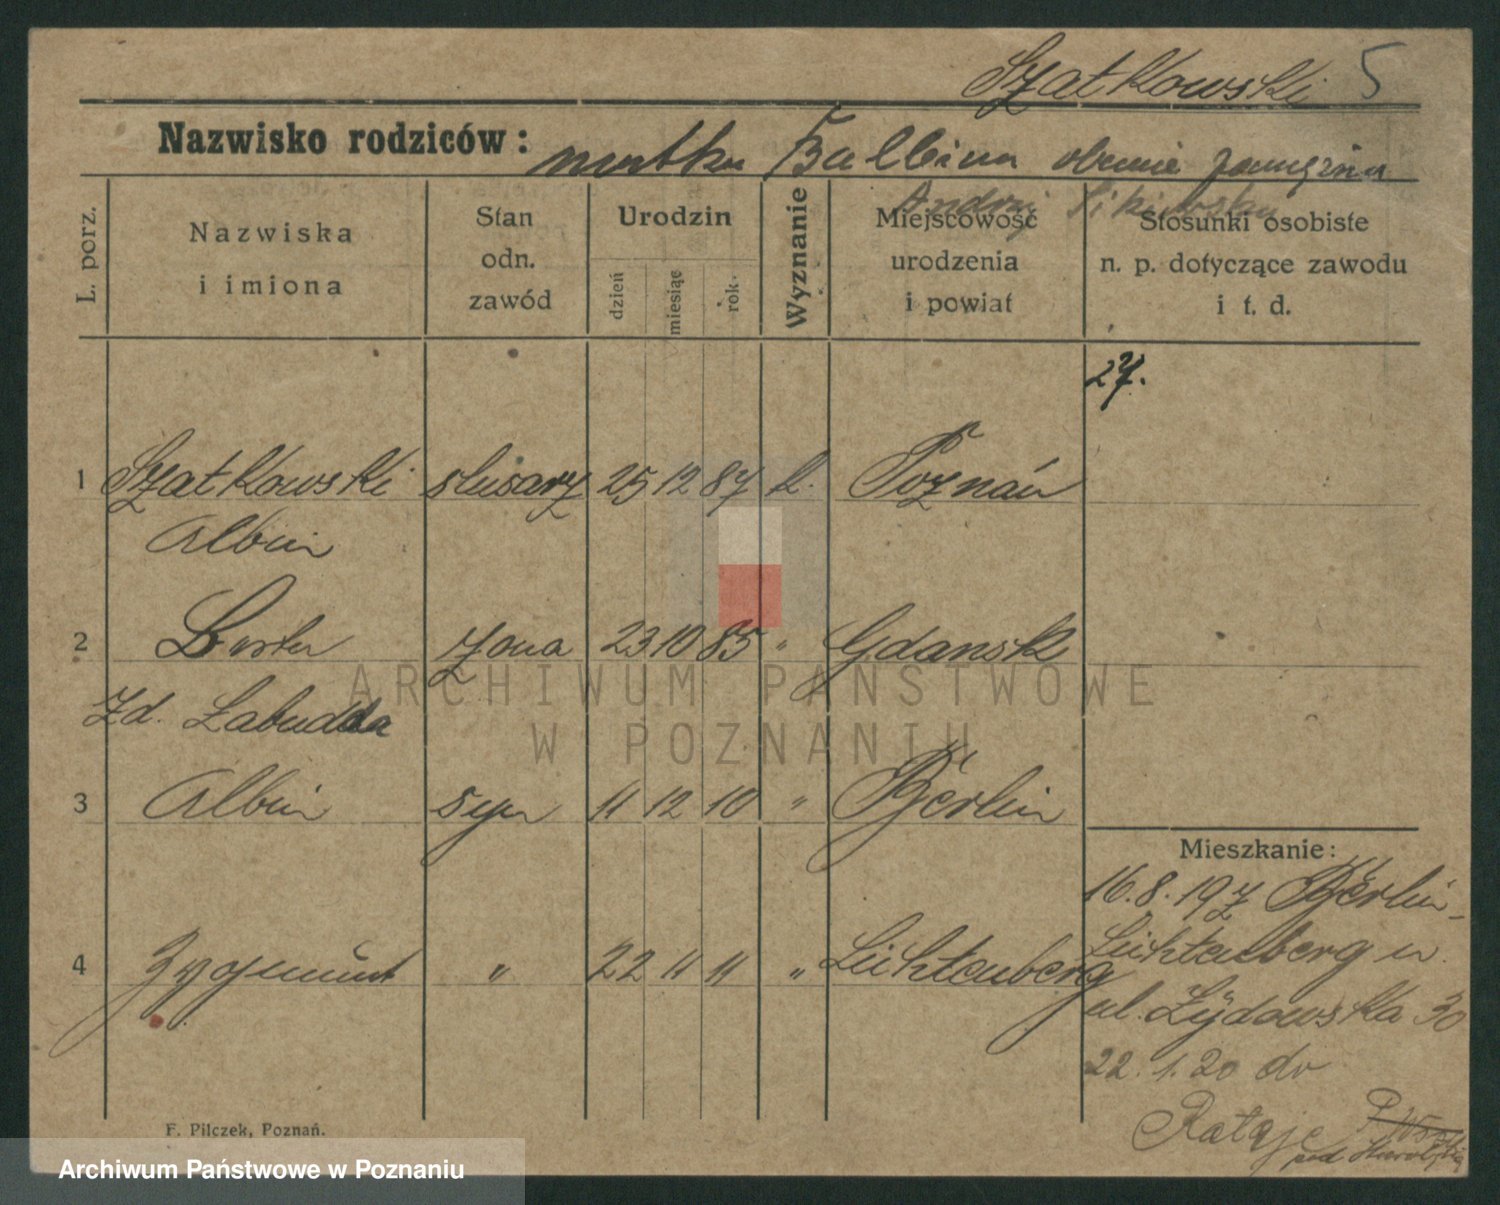 Szatkowski 5
Nazwisko rodziców: matka Balbina obecnie zamężna
Andrzej
L. porz.
Nazwiska
i imiona
Stan
odn.
zawód
Urodzin
dzień
miesiąc
rok.
Wyznanie
Miejscowość
urodzenia
i powiat
Stosunki osobiste
n. p. dotyczące zawodu
i t. d.
27.
1 Szatkowski ślusarz 25 12 87 k. Poznań
Albin
2 żona 23 10 85 " Gdańsk
Zd. Labudda
3 Albin syn 11 12 10 " Berlin
Mieszkanie:
16.8.19 z Berlin-
Lichtenberg n.
ul. Żydowska 30
22.1.20 do
Rataje
4 Zygmunt " 22 11 11 " Lichtenberg
F. Pilczek, Poznań.
ARCHIWUM PAŃSTWOWE
W POZNANIU
Archiwum Państwowe w Poznaniu